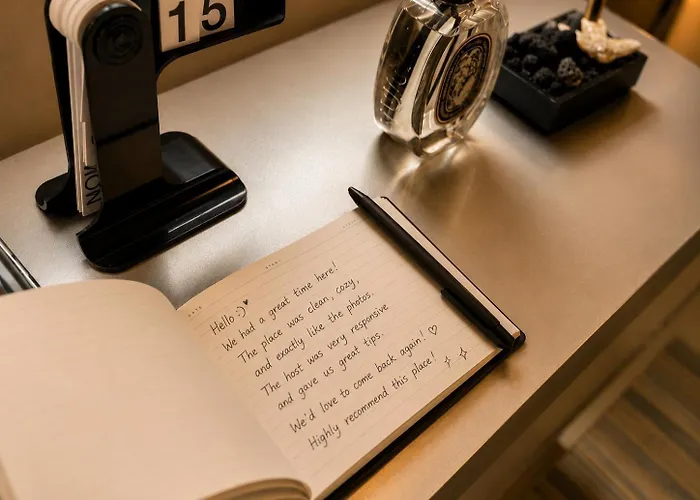 15
NOV
Hello :) ♥
We had a great time here!
The place was clean, cozy,
and exactly like the photos.
The host was very responsive
and gave us great tips.
We'd love to come back again! ♡
Highly recommend this place! ✧ ✧